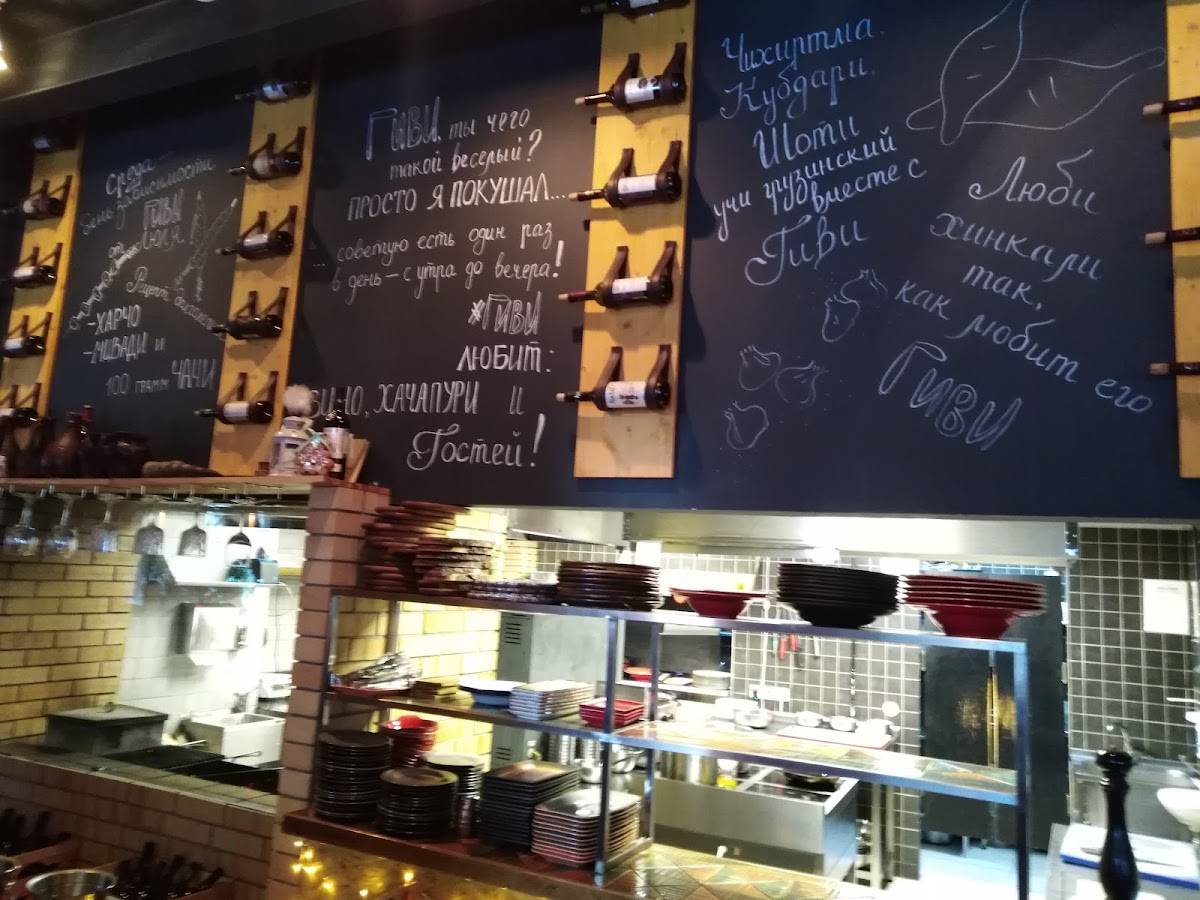 Среда —
зависимости
от
Гиви
Рецепт
-ХАРЧО
-МЦВАДИ и
100 грамм ЧАЧИ
Гиви, ты чего
такой веселый?
ПРОСТО Я ПОКУШАЛ...
советую есть один раз
в день – с утра до вечера!
#ГИВИ
ЛЮБИТ:
ВИНО, ХАЧАПУРИ и
Гостей!
Чихиртма.
Кубдари.
Шоти
учи грузинский
вместе с
Гиви
Люби
хинкали
так,
как любит его
Гиви